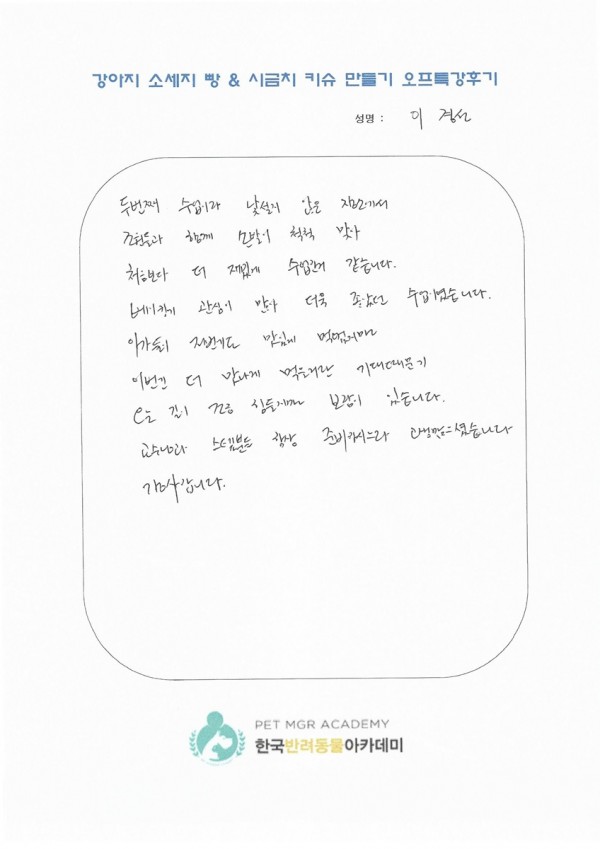 강아지 소세지 빵 & 시금치 키슈 만들기 오프특강후기
성명 : 이 경선
두번째 수업이라 낯설지 않은 장소에서
조원들과 함께 손발이 척척 맞아
처음보다 더 재밌게 수업한거 같습니다.
베이킹에 관심이 많아 더욱 좋았던 수업이였습니다.
아가들이 저번기도 맛있게 먹었지만
이번건 더 맛나게 먹을거란 기대때문에
오는 길이 조금 힘들지만 보람이 있습니다.
교수님과 스텝분들 항상 준비하시느라 고생많으셨습니다
감사합니다.
PET MGR ACADEMY
한국반려동물아카데미